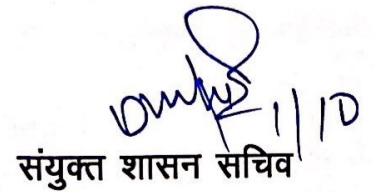 1/10
संयुक्त शासन सचिव